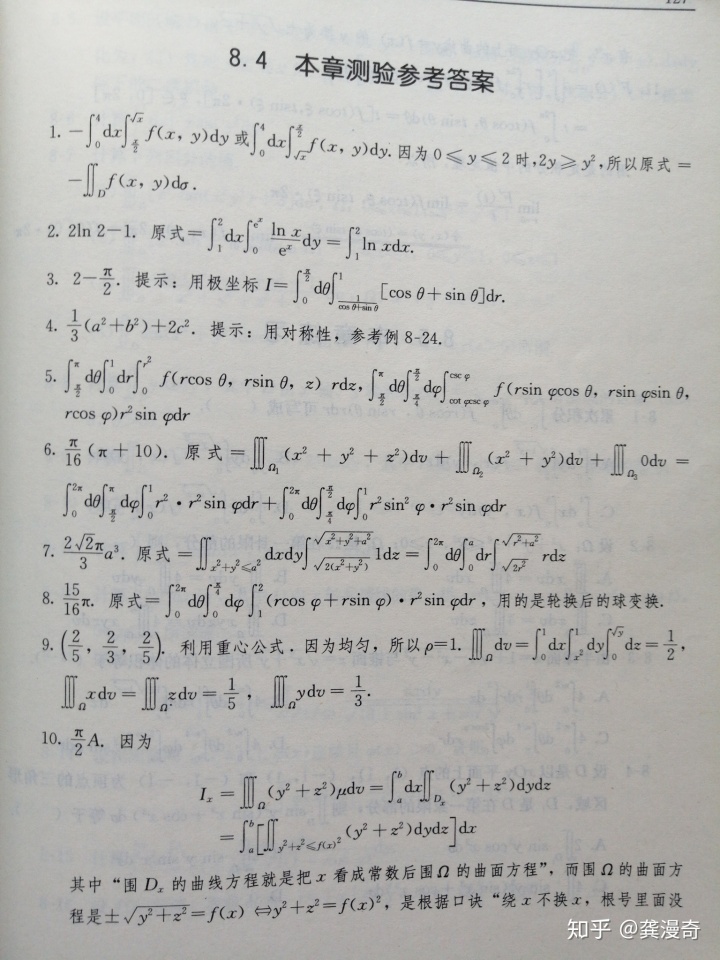 127
8.4 本章测验参考答案
1. −∫₀⁴dx∫_{x/2}^{√x} f(x, y)dy 或∫₀⁴dx∫_{√x}^{x/2} f(x, y)dy. 因为 0≤y≤2 时,2y≥y²,所以原式 =
−∬_D f(x, y)dσ.
2. 2ln 2−1. 原式=∫₁²dx∫₀^{eˣ} (ln x/eˣ)dy=∫₁²ln xdx.
3. 2−π/2. 提示:用极坐标 I=∫₀^{π/2}dθ∫_{1/(cos θ+sin θ)}^1[cos θ+sin θ]dr.
4. 1/3(a²+b²)+2c². 提示:用对称性,参考例 8-24.
5. ∫_{π/2}^π dθ∫₀¹dr∫₀^{r²} f(rcos θ, rsin θ, z) rdz,∫_{π/2}^π dθ∫_{π/4}^{π/2}dφ∫_{cot φcsc φ}^{csc φ} f(rsin φcos θ, rsin φsin θ,
rcos φ)r²sin φdr
6. π/16(π+10). 原式=∭_{Ω₁}(x²+y²+z²)dv+∭_{Ω₂}(x²+y²)dv+∭_{Ω₃}0dv=
∫₀^{2π}dθ∫_{π/2}^π dφ∫₀¹r²·r²sin φdr+∫₀^{2π}dθ∫_{π/4}^{π/2}dφ∫₀¹r²sin²φ·r²sin φdr
7. (2√2π/3)a³. 原式=∬_{x²+y²≤a²}dxdy∫_{√(2(x²+y²))}^{√(x²+y²+a²)}1dz=∫₀^{2π}dθ∫₀^a dr∫_{√(2r²)}^{√(r²+a²)} rdz
8. 15/16π. 原式=∫₀^{2π}dθ∫₀^{π/4}dφ∫₁²(rcos φ+rsin φ)·r²sin φdr,用的是轮换后的球变换.
9. (2/5, 2/3, 2/5). 利用重心公式.因为均匀,所以ρ=1.∭_Ω dv=∫₀¹dx∫_{x²}^1dy∫₀^{√y}dz=1/2,
∭_Ω xdv=∭_Ω zdv=1/5,∭_Ω ydv=1/3.
10. π/2 A. 因为
Iₓ=∭_Ω(y²+z²)μdv=∫_a^b dx∬_{Dₓ}(y²+z²)dydz
=∫_a^b[∬_{y²+z²≤f(x)²}(y²+z²)dydz]dx
其中“围 Dₓ 的曲线方程就是把 x 看成常数后围Ω的曲面方程”,而围Ω的曲面方
程是±√(y²+z²)=f(x)⇔y²+z²=f(x)²,是根据口诀“绕 x 不换x,根号里面没
知乎 @龚漫奇